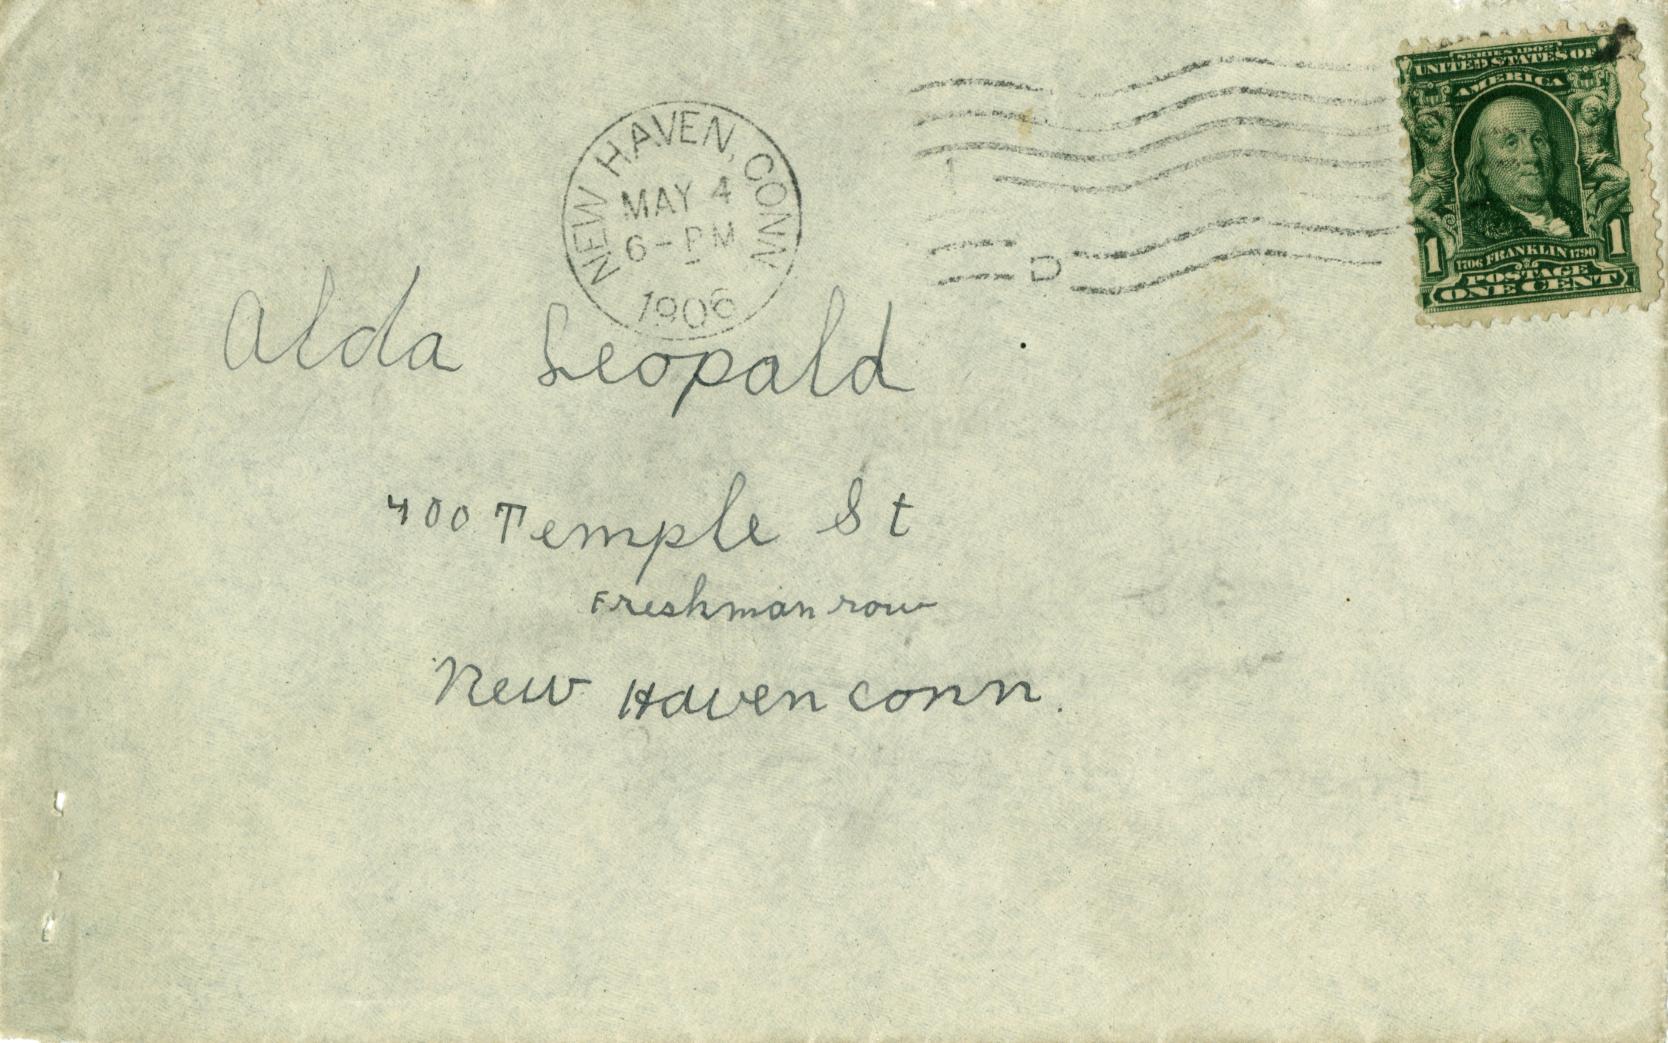 SERIES 1902
UNITED STATES OF
AMERICA
1706 FRANKLIN 1790
1 1
POSTAGE
ONE CENT
NEW HAVEN, CONN
MAY 4
6-PM
1906
D
Alda Leopald
400 Temple St
Freshman row
New Haven conn.